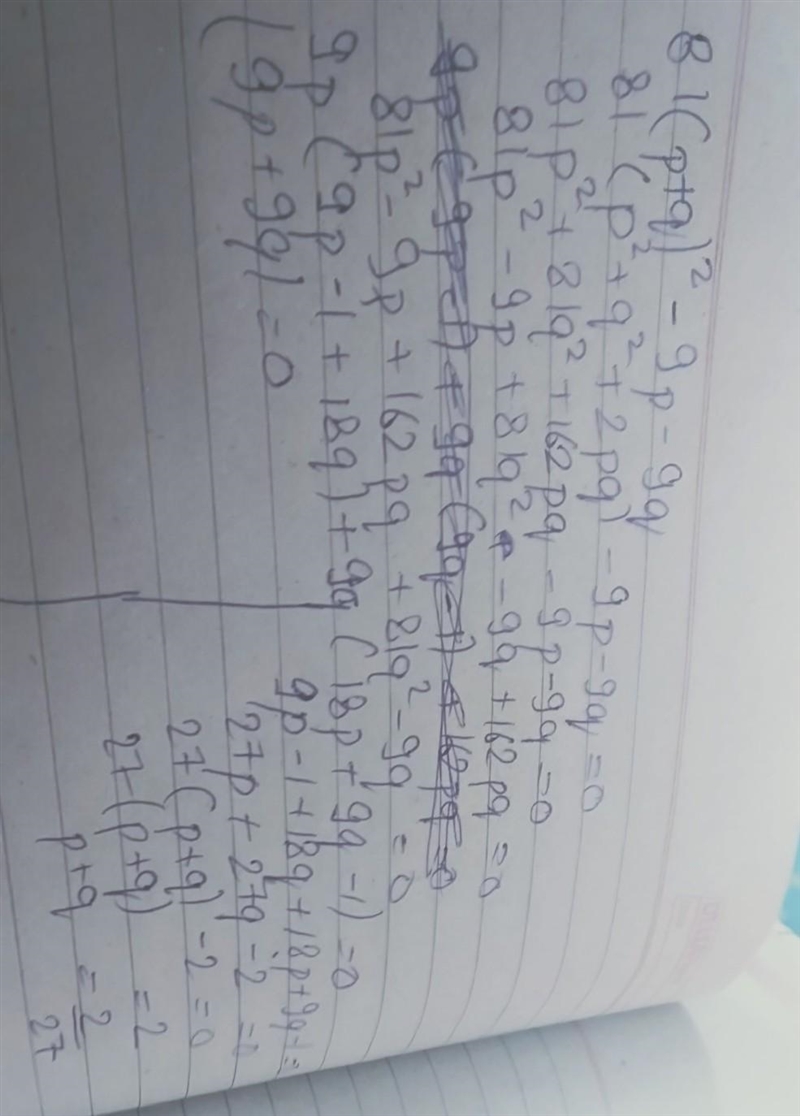 81(p+q)² - 9p - 9q
81 (p² + q² + 2pq) - 9p - 9q = 0
81p² + 81q² + 162pq - 9p - 9q = 0
81p² - 9p + 81q² - 9q + 162pq = 0
9p (9p-1) + 9q (9q-1) + 162pq = 0
81p² - 9p + 162pq + 81q² - 9q = 0
9p (9p - 1 + 18q) + 9q (18p + 9q - 1) = 0
(9p + 9q) = 0
9p - 1 + 18q + 18p + 9q - 1 =
27p + 27q - 2 = 0
27 (p+q) - 2 = 0
27 (p+q) = 2
p+q = 2
27